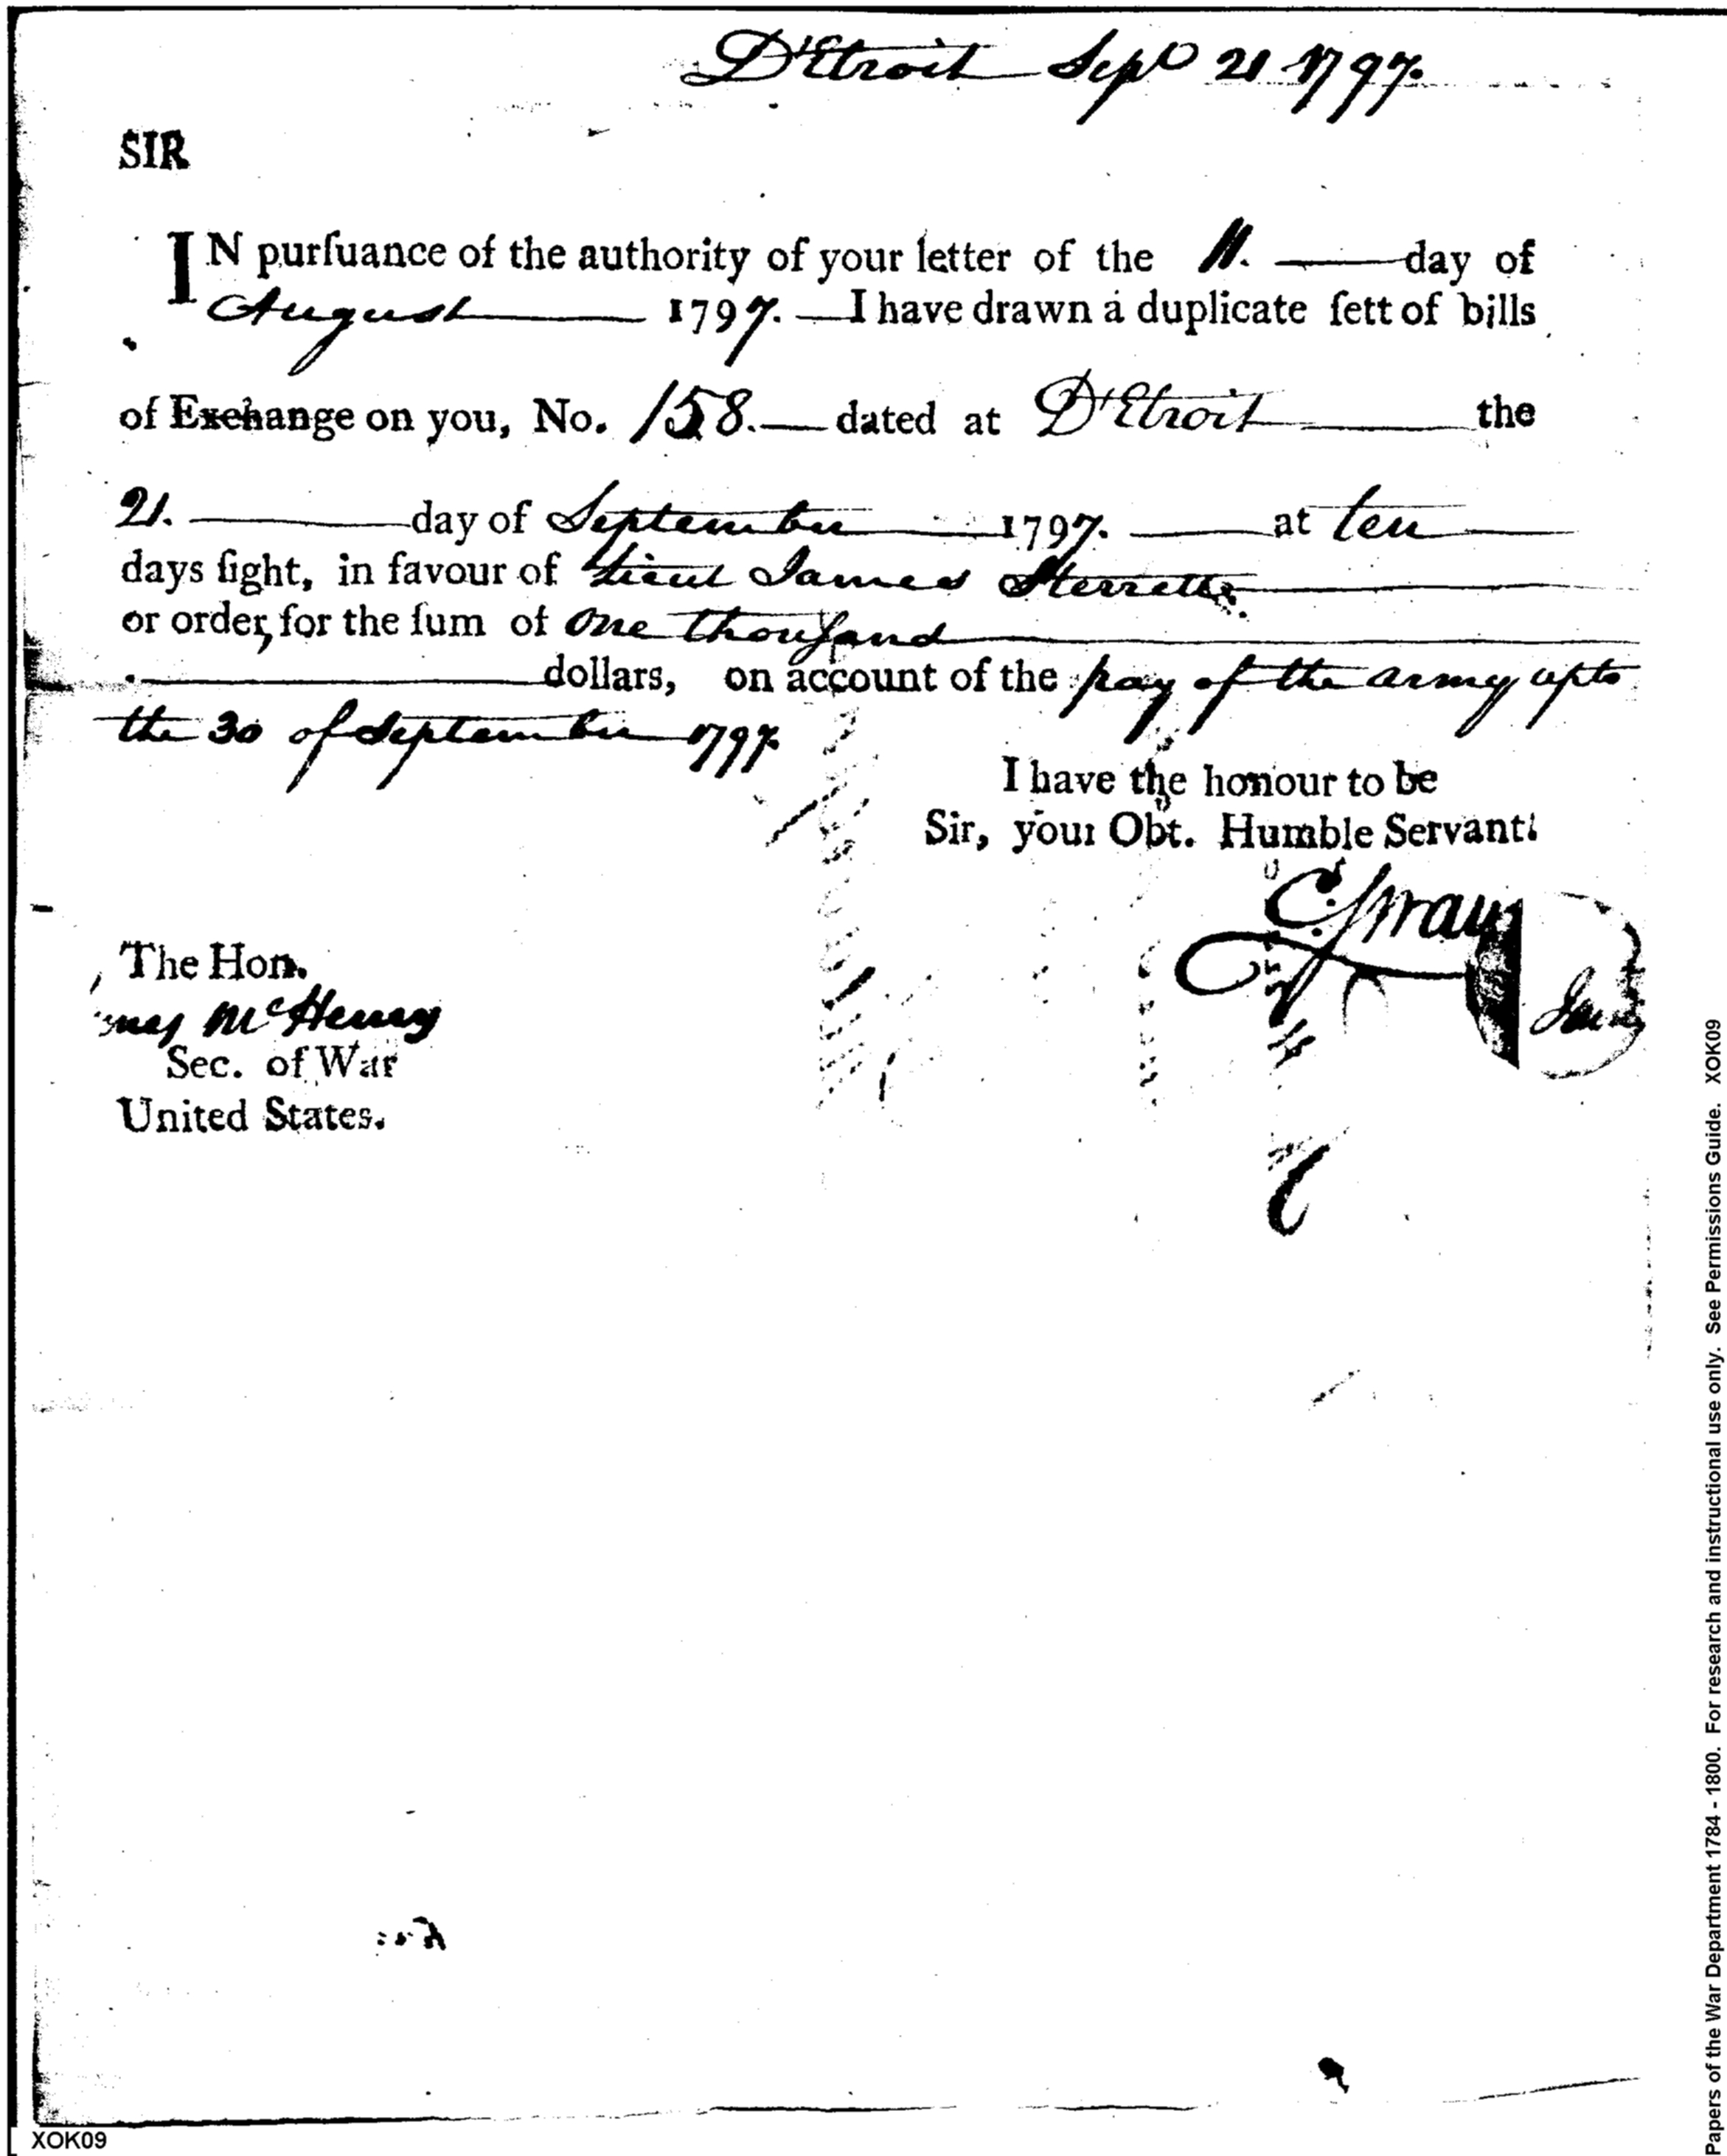 D'Etroit Sepr 21 1797.
SIR
IN purſuance of the authority of your letter of the 11. day of
August 1797. I have drawn a duplicate ſett of bills
of Exchange on you, No. 158. dated at D'Etroit the
21. day of September 1797. at ten
days ſight, in favour of Lieut James Sterrett
or order, for the ſum of One thouſand
dollars, on account of the pay of the army upto
the 30 of September 1797.
I have the honour to be
Sir, your Obt. Humble Servant.
C. Swan
The Hon.
McHenry
Sec. of War
United States.
XOK09
Papers of the War Department 1784 - 1800. For research and instructional use only. See Permissions Guide. XOK09